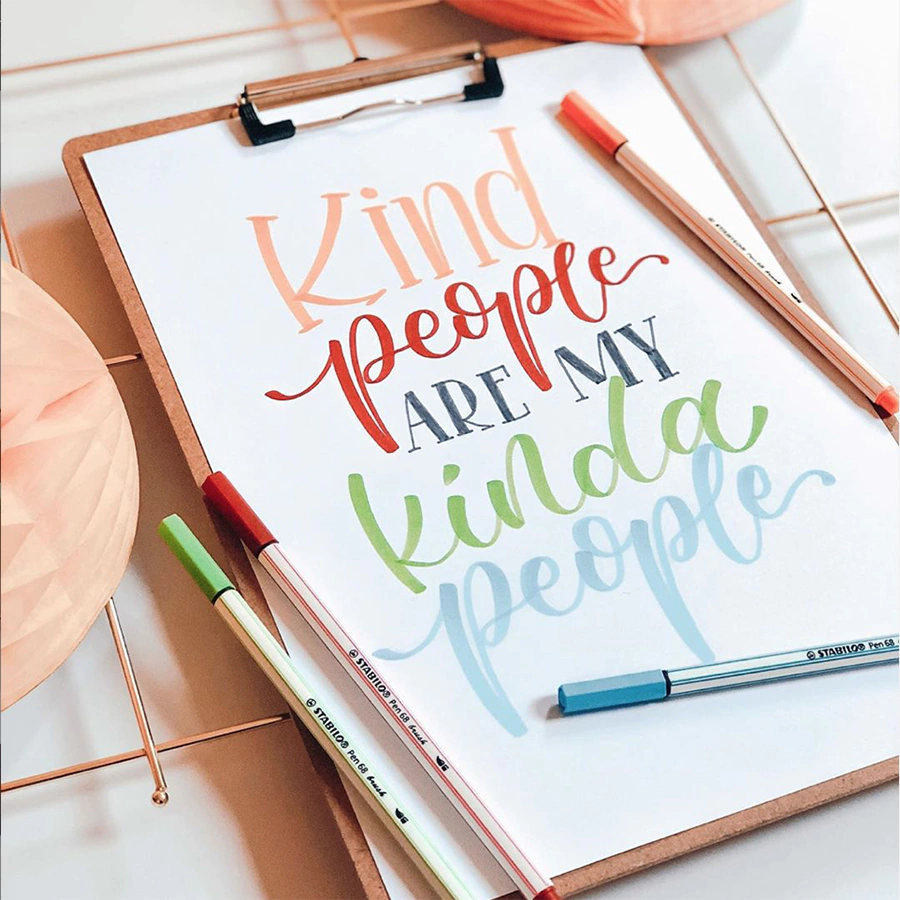 Kind
people
ARE MY
kinda
people
STABILO® Pen 68 brush
STABILO® Pen 68 brush
STABILO® Pen 68
STABILO® Pen 68 brush